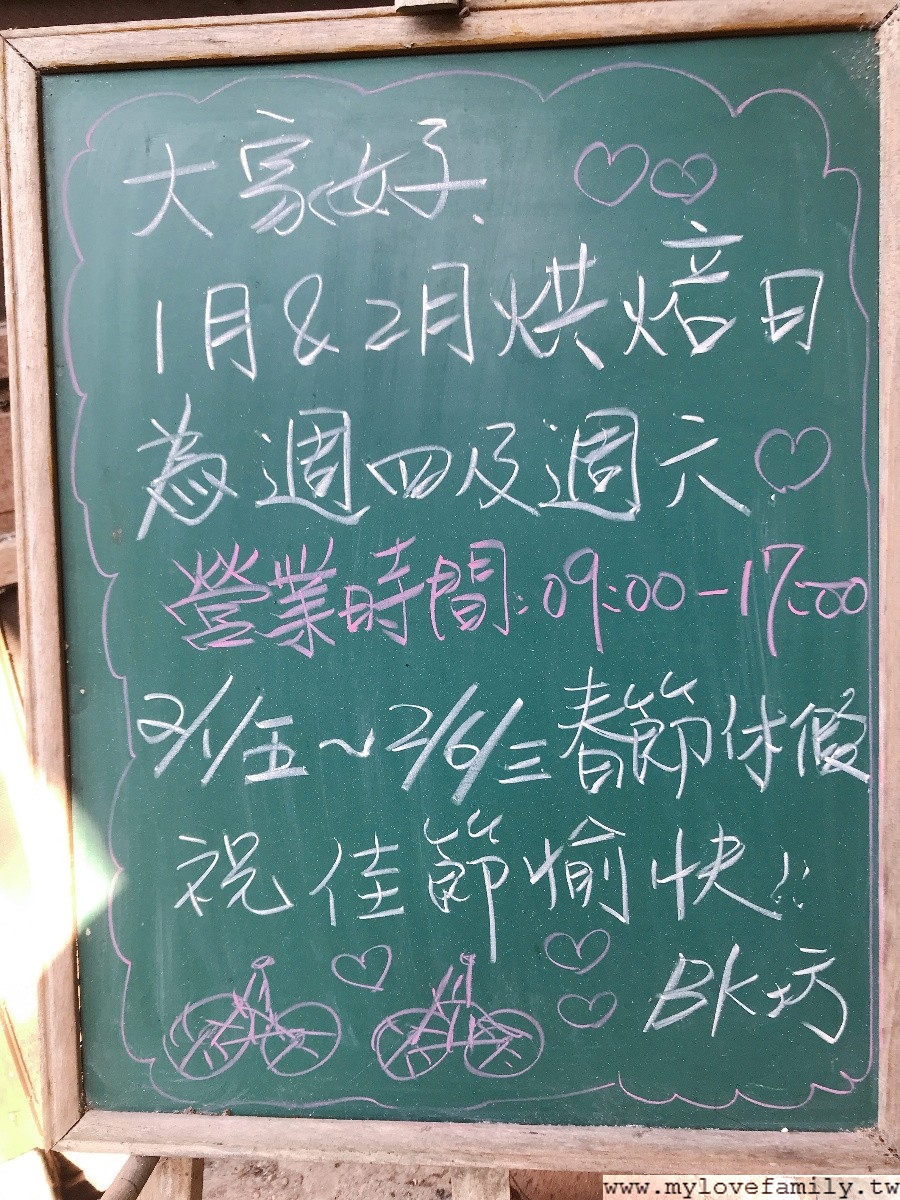 大家好、
1月&2月烘焙日
為週四及週六.
營業時間:09:00-17:00
2/1/五~2/6/三春節休假
祝佳節愉快!!
BK坊
www.mylovefamily.tw